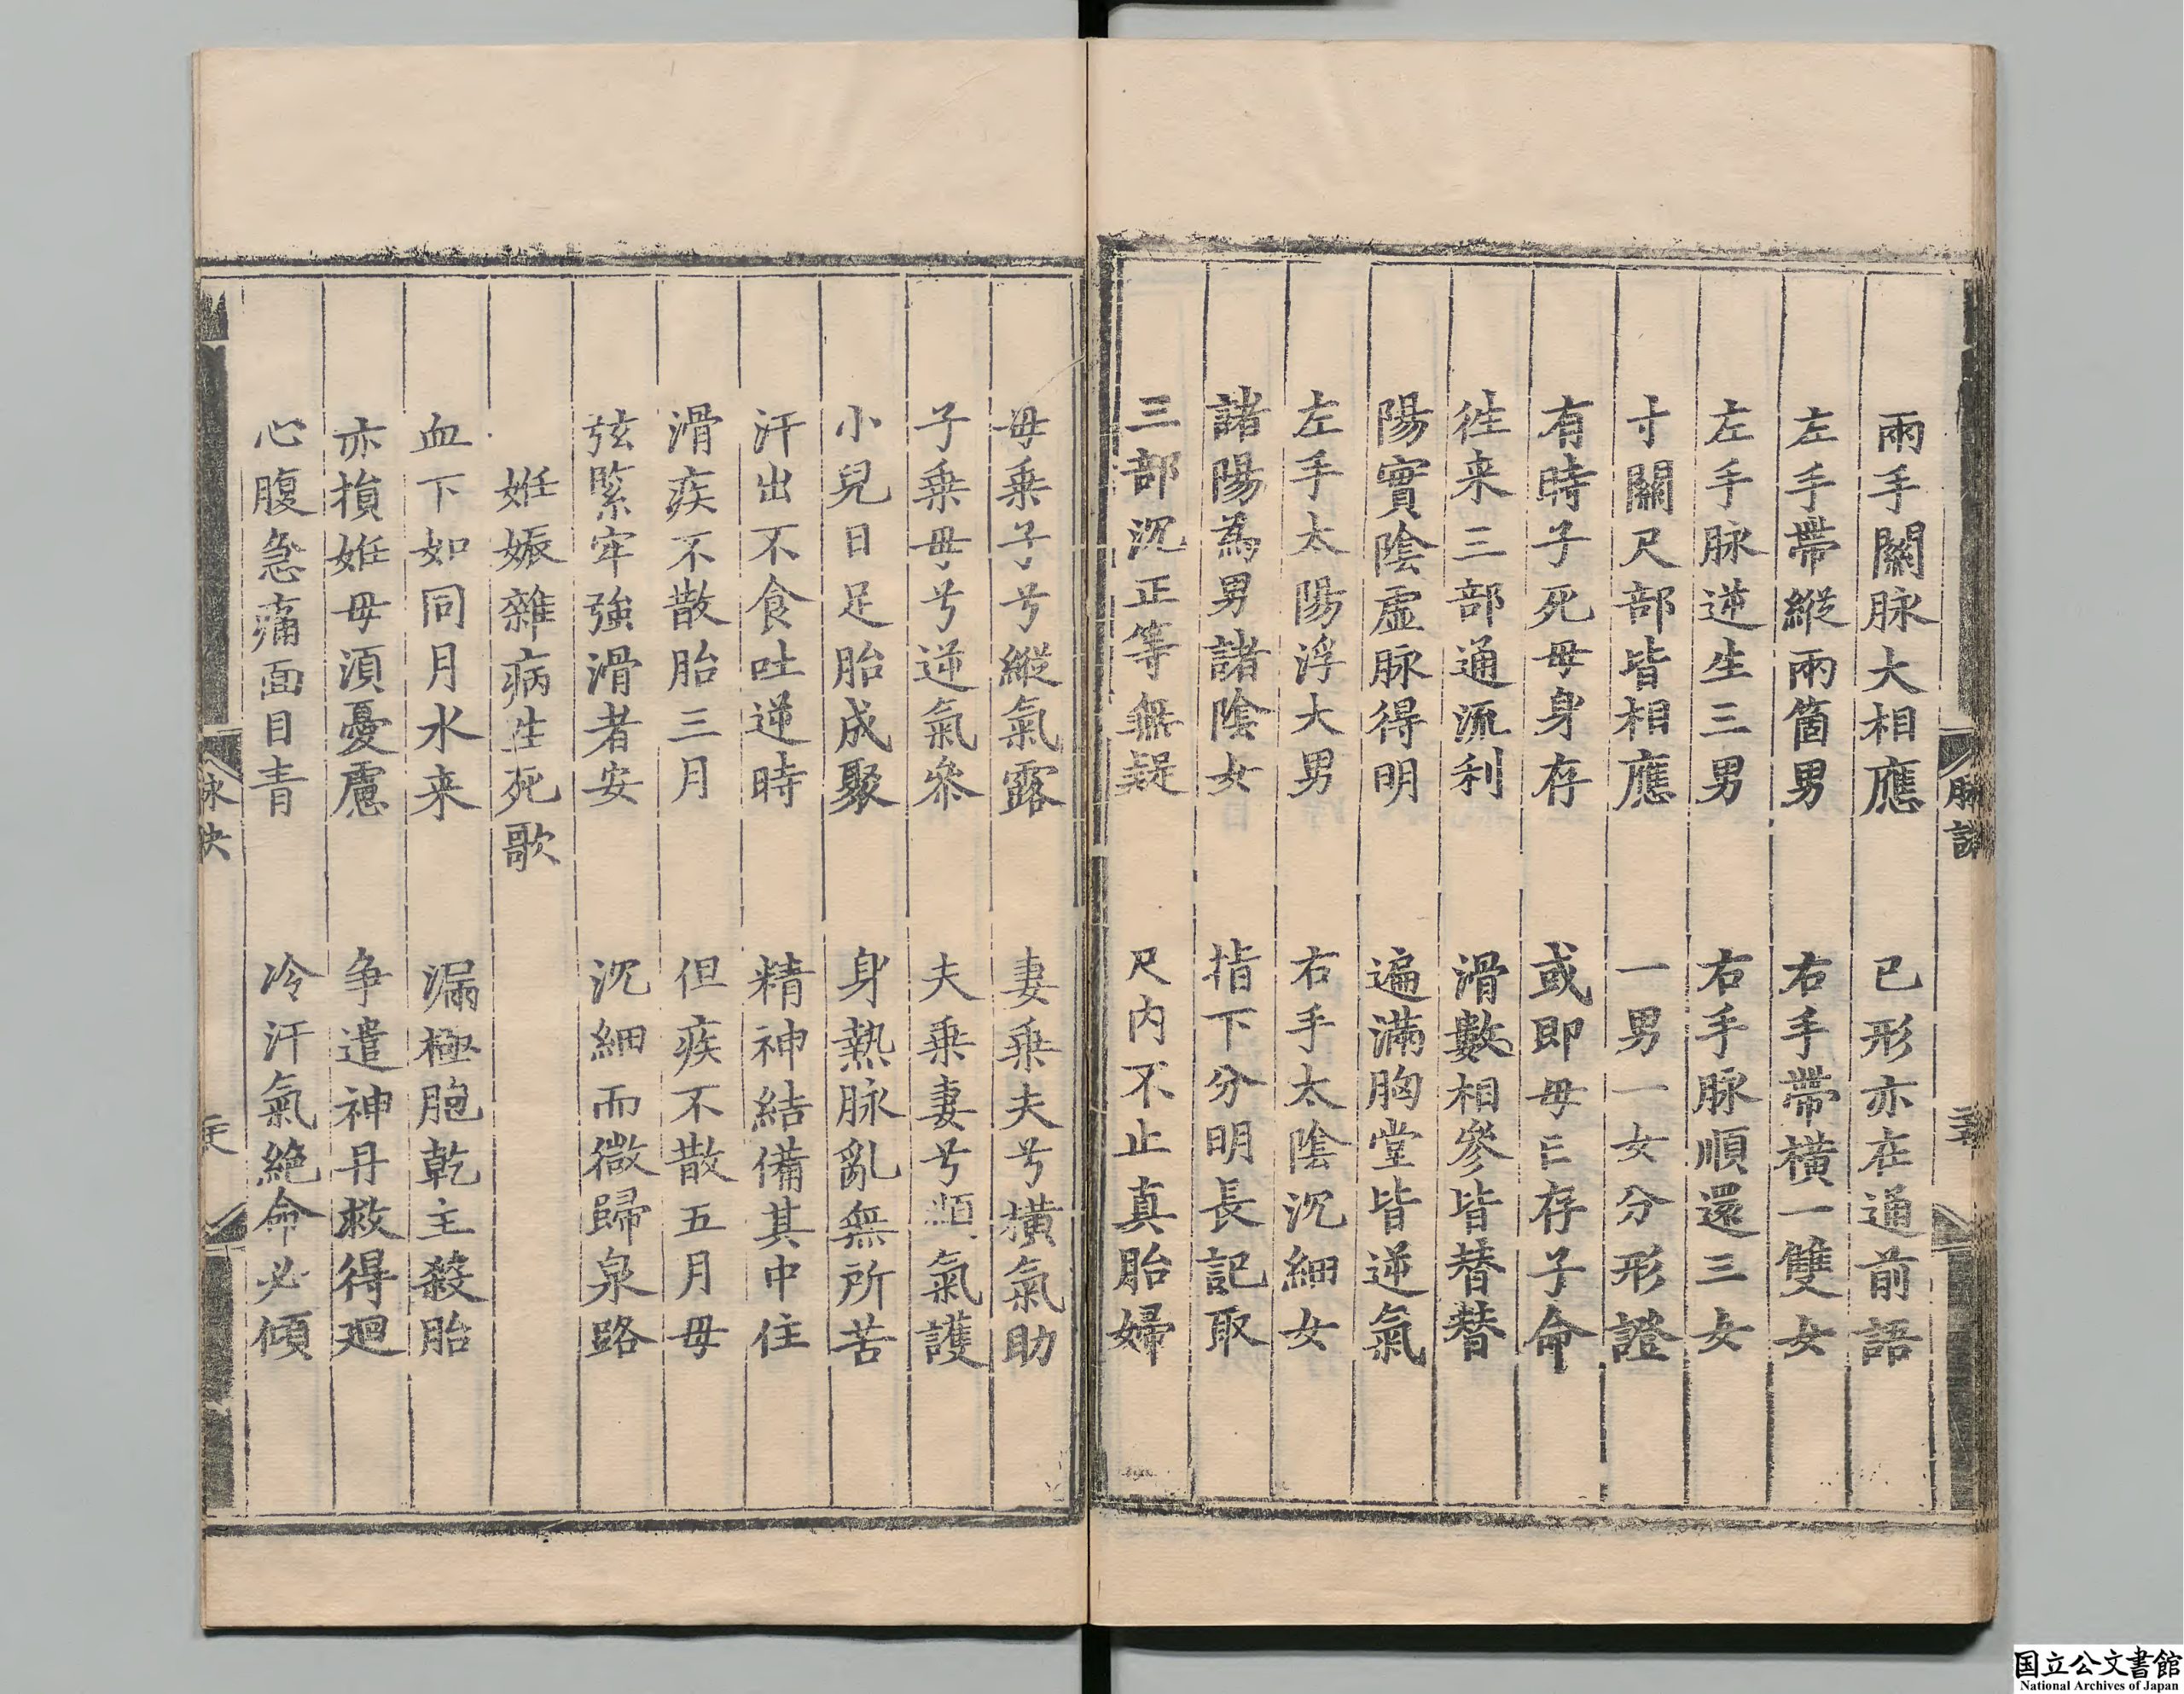 兩手關脉大相應　已形亦在通前語
左手帶縱兩箇男　右手帶橫一雙女
左手脉逆生三男　右手脉順還三女
寸關尺部皆相應　一男一女分形證
有時子死母身存　或即母亡存子命
徃来三部通流利　滑數相參皆替替
陽實陰虛脉得明　遍滿胸堂皆逆氣
左手太陽浮大男　右手太陰沉細女
諸陽為男諸陰女　指下分明長記取
三部沉正等無疑　尺内不止真胎婦
母乗子兮縱氣露　妻乗夫兮橫氣助
子乗母兮逆氣參　夫乗妻兮順氣護
小兒日足胎成聚　身熱脉亂無所苦
汗出不食吐逆時　精神結備其中住
滑疾不散胎三月　但疾不散五月母
弦緊牢強滑者安　沉細而微歸泉路
姙娠雜病生死歌
血下如同月水来　漏極胞乾主殺胎
亦損姙母湏憂慮　争遣神丹救得廻
心腹急痛面目青　冷汗氣絶命必傾
脉訣
国立公文書館
National Archives of Japan